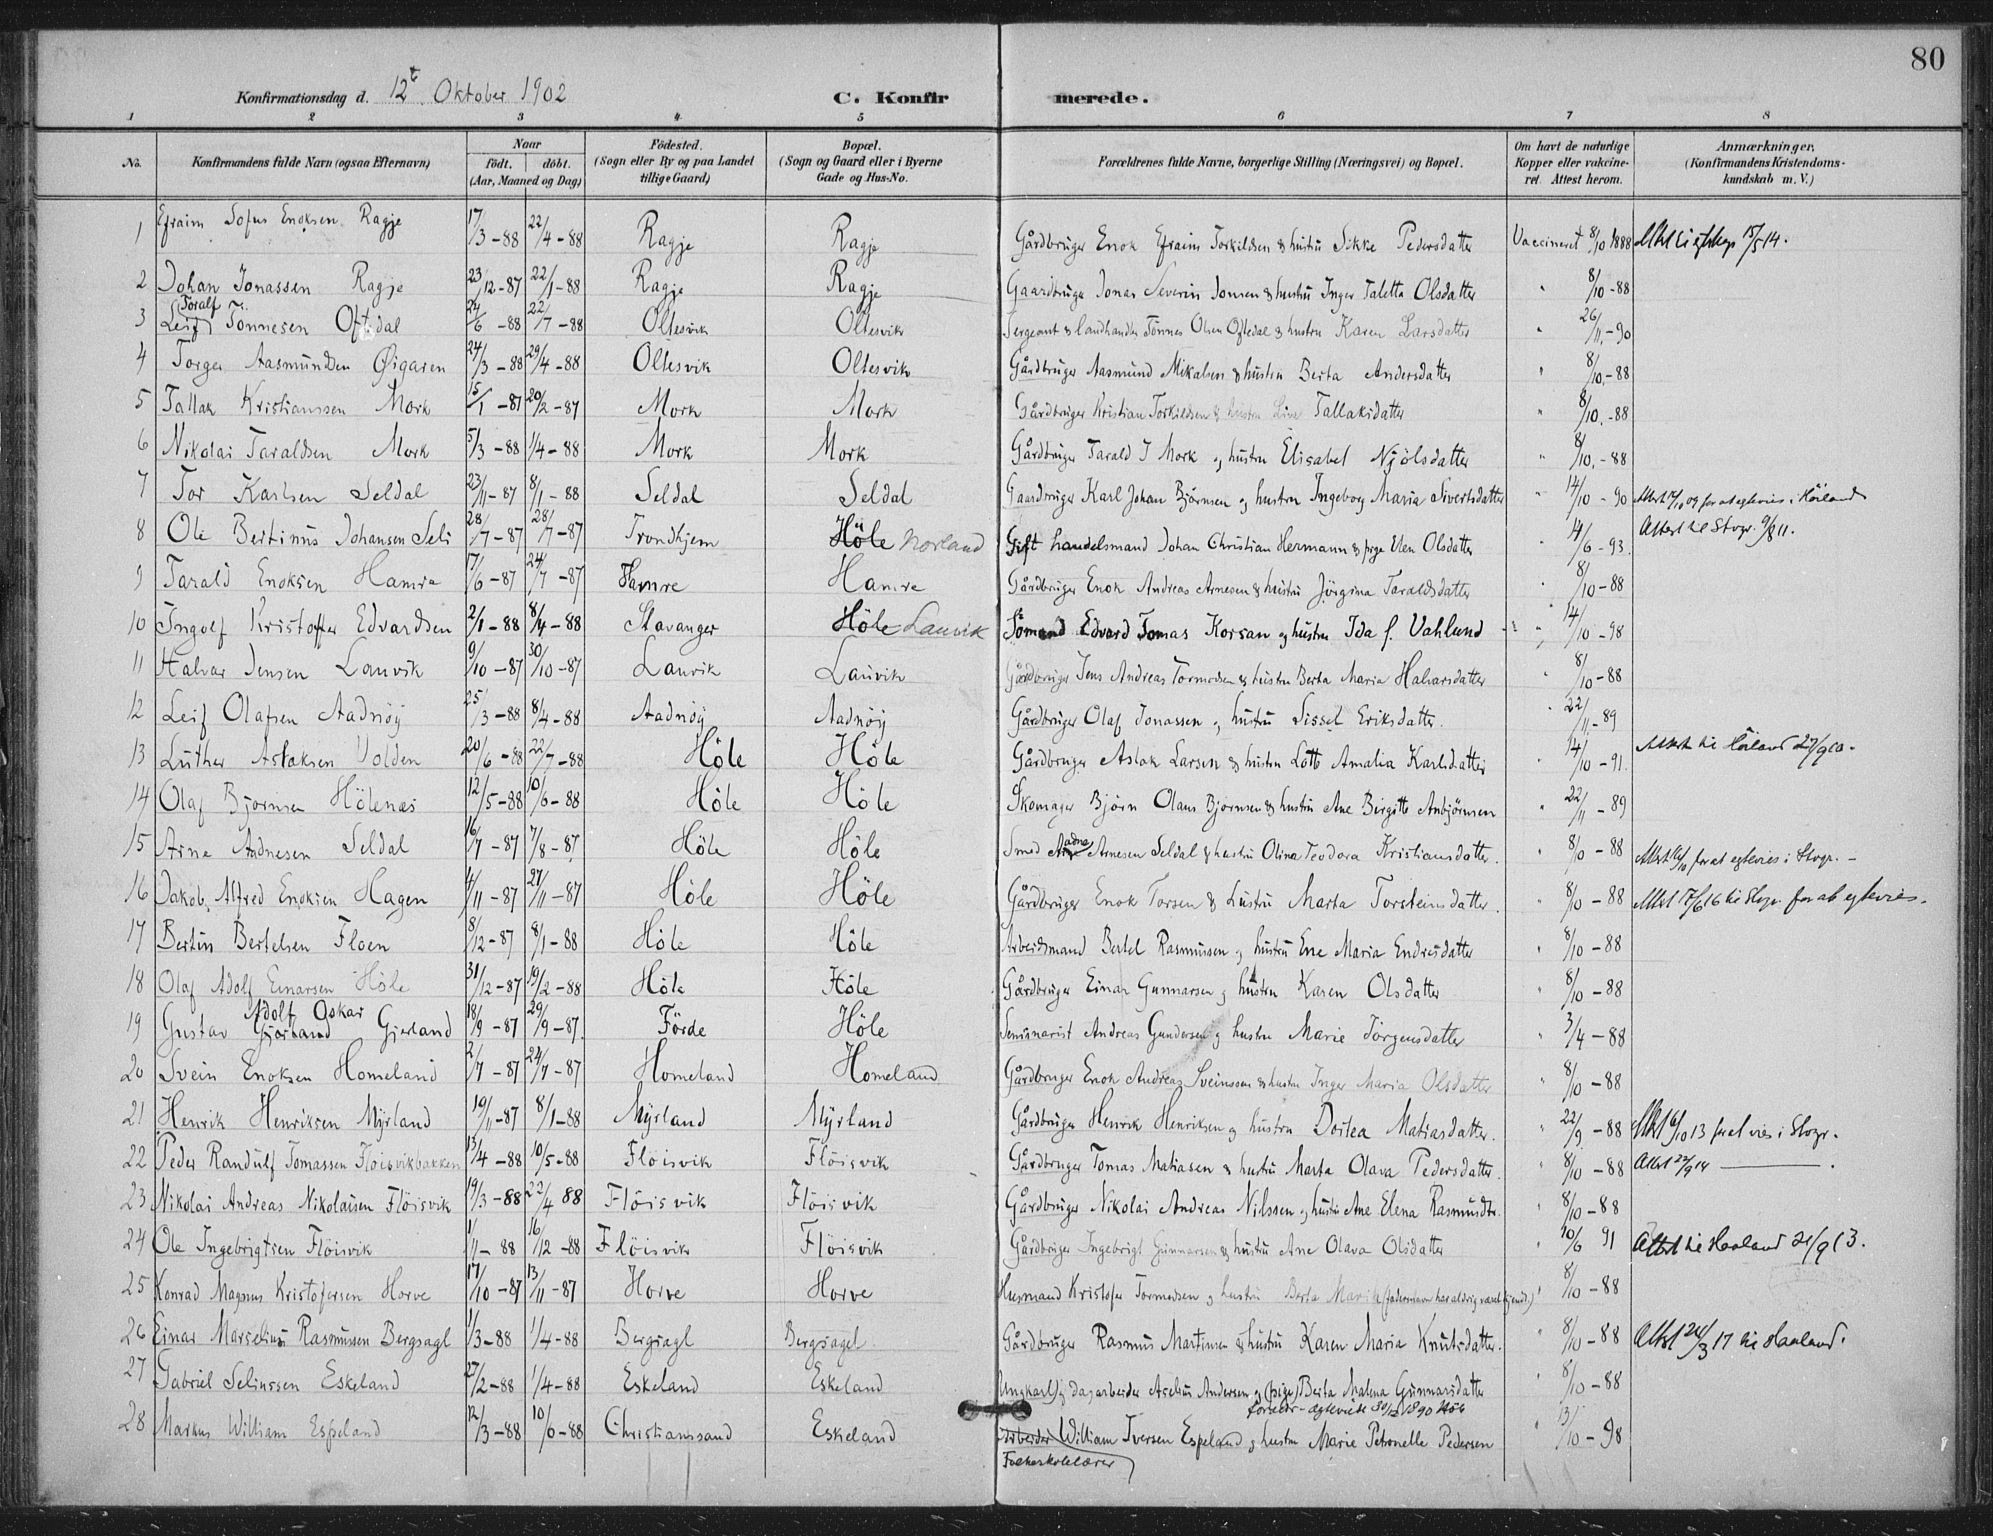 80
Konfirmationsdag d. 12te Oktober 1902 C. Konfirmerede.
1 2 3 4 5 6 7 8
No. Konfirmandens fulde Navn (ogsaa Efternavn) Naar født. døbt. (Aar, Maaned og Dag) Fødested. (Sogn eller By og paa Landet tillige Gaard) Bopæl. (Sogn og Gaard eller i Byerne Gade og Hus-No. Forældrenes fulde Navne, borgerlige Stilling (Næringsvei) og Bopæl. Om havt de naturlige Kopper eller vakcineret. Attest herom. Anmærkninger, (Konfirmandens Kristendomskundskab m. V.)
1 Efraim Sofus Enoksen Ragje 17/3-88 22/4-88 Ragje Ragje Gårdbruger Enok Efraim Torkildsen & hustru Sikke Pedersdatter Vaccineret 8/10 1888 15/5 14.
2 Johan Jonassen Ragje 23/12-87 22/1-88 Ragje Ragje Gaardbruger Jonas Severin Jonsen & hustru Inger Taletta Olsdatter " 8/10-88
3 Leif Toralf Tønnesen Oftedal 24/6-88 22/7-88 Oltesvik Oltesvik Sergeant & landhandler Tønnes Olsen Oftedal & hustru Karen Larsdatter " 26/11-90
4 Torger Aasmundsen Øigaren 24/3-88 29/4-88 Oltesvik Oltesvik Gårdbruger Aasmund Mikalsen & hustru Berta Andersdatter " 8/10-88
5 Tallak Kristianssen Mork 15/1-87 20/2-87 Mork Mork Gårdbruger Kristian Torkildsen & hustru Line Tallaksdatter " 8/10-88
6 Nikolai Taraldsen Mork 5/3-88 1/4-88 Mork Mork Gårdbruger Tarald T Mork og hustru Elisabet Njølsdatter " 8/10-88
7 Tor Karlsen Seldal 23/11-87 8/1-88 Seldal Seldal Gaardbruger Karl Johan Bjørnsen og hustru Ingeborg Maria Sivertsdatter " 14/10-90 for at egtevies i Høiland
8 Ole Bertinus Johansen Seli 28/7-87 28/7-87 Trondhjem Høle Norland Gift handelsmand Johan Christian Hermann & pige Elen Olsdatter " 4/6-93. Attest til Stvgr. 9/8 11.
9 Tarald Enoksen Hamre 17/6-87 24/7-87 Hamre Hamre Gårdbruger Enok Andreas Arnesen & hustru Jörgina Taraldsdatter " 8/10-88
10 Ingolf Kristoffer Edvardsen 2/1-88 8/4-88 Stavanger Høle Lauvik Sømand Edvard Tomas Korsan og hustru Ida f. Vahlund " 14/10-98
11 Halvar Jensen Lauvik 9/10-87 30/10-87 Lauvik Lauvik Gårdbruger Jens Andreas Tormodsen & hustru Berta Maria Halvarsdatter " 8/10-88
12 Leif Olafsen Aadnøy 25/3-88 8/4-88 Aadnøy Aadnøy Gårdbruger Olaf Jonassen og hustru Sissel Eriksdatter. " 22/11-89
13 Luther Aslaksen Volden 20/6-88 22/7-88 Høle Høle Gårdbruger Aslak Larsen & hustru Lott Amalia Karlsdatter " 14/10-91. Attest til Høiland 27/9 10.
14 Olaf Bjørnsen Hölenæs 12/5-88 10/6-88 Høle Høle Skomager Bjørn Olaus Bjørnsen & hustru Ane Birgitte Anbjørnsen " 22/11-89
15 Arne Aadnesen Seldal 16/7-87 7/8-87 Høle Høle Smed Aadne Arnesen Seldal & hustru Olina Teodora Kristiansdatter. " 8/10-88 for at egtevies i Stvgr. -
16 Jakob Alfred Enoksen Hagen 4/11-87 27/11-87 Høle Høle Gårdbruger Enok Torsen & hustru Marta Torsteinsdatter. " 8/10-88 Attest 17/6 16 til Stvgr. for at egtevies.
17 Bertin Bertelsen Floen 8/12-87 8/1-88 Høle Høle Arbeidsmand Bertel Rasmussen og hustru Ene Maria Endresdatter " 8/10-88
18 Olaf Adolf Einarsen Høle 31/12-87 19/2-88 Høle Høle Gårdbruger Einar Gunnarsen og hustru Karen Olsdatter " 8/10-88
19 Gustav Adolf Oskar Gjerland 18/9-87 29/9-87. Förde Høle Seminarist Andreas Gundersen og hustru Marie Jörgensdatter " 3/4-88
20 Svein Enoksen Homeland 2/7-87 24/7-87 Homeland Homeland Gårdbruger Enok Andreas Sveinssen & hustru Inger Maria Olsdatter " 8/10-88
21 Henrik Henriksen Myrland 19/11-87 8/1-88 Myrland Myrland Gårdbruger Henrik Henriksen og hustru Dortea Matiasdatter. " 22/9-88 Attest 6/10 13 for at vies i Stvgr.
22 Peder Randulf Tomassen Fløisvikbakken 13/4-88 10/5-88 Fløisvik Fløisvik Gårdbruger Tomas Matiasen & hustru Marta Olava Pedersdatter. " 8/10-88 Attest 22/9 14 ——.
23 Nikolai Andreas Nikolaisen Fløisvik 19/3-88 22/4 88 Fløisvik Fløisvik Gårdbruger Nikolai Andreas Nilssen og hustru Ane Elena Rasmusdtr. " 8/10-88
24 Ole Ingebrigtsen Fløisvik 1/11-88 16/12-88 Fløisvik Fløisvik Gårdbruger Ingebrigt Gunnarsen & hustru Ane Olava Olsdatter " 10/6 91 Attest til Haaland 21/9 13.
25 Konrad Magnus Kristofersen Horve 17/10-87 13/11-87 Horve Horve Husmand Kristofer Tormodsen og hustru Berta Marik (fadernavn har aldrig været kjendt.) " 8/10-88
26 Einar Marselius Rasmussen Bergsagl 1/3-88 1/4-88 Bergsagl Bergsagel Gårdbruger Rasmus Martinsen & hustru Karen Maria Knutsdatter. " 8/10-88 Attest 24/3 17 til Haaland.
27 Gabriel Selinssen Eskeland 27/2-88 1/4-88 Eskeland Eskeland Ungkarl og dagarbeider Aselius Andersen og (pige) Berta Malena Gunnarsdatter " 8/10-88
forældr. egteviede 30/12 1890
28 Markus William Espeland 12/3-88 10/6-88 Christianssand Eskeland Arbeider William Iversen Espeland og hustru Marie Petronelle Pedersen " 13/10-98
Folkeskolelærer